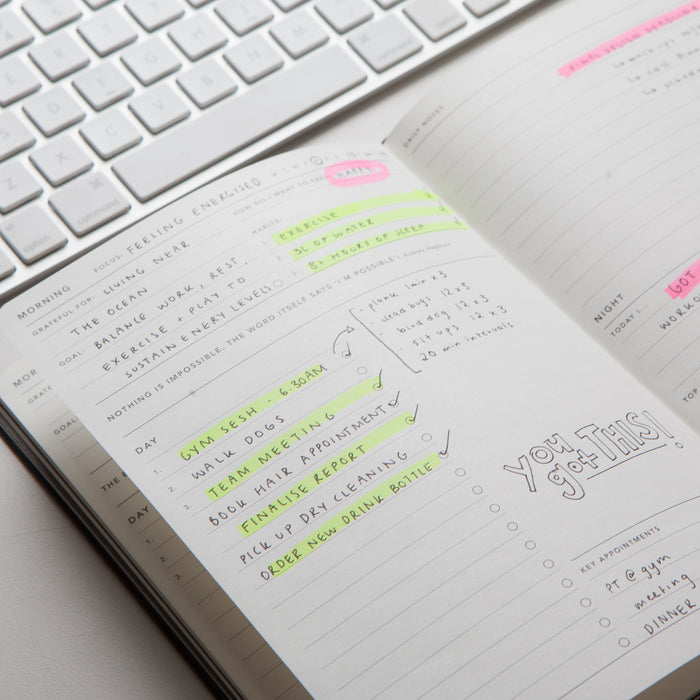 option
command
command
MORNING
FOCUS: FEELING ENERGISED
M T W T F S S
GRATEFUL FOR: LIVING NEAR
THE OCEAN
GOAL: BALANCE WORK, REST,
EXERCISE + PLAY TO
SUSTAIN ENERY LEVELS
HOW DO I WANT TO FEEL? HAPPY
HABITS:
1. EXERCISE
2. 3L OF WATER
3. 8+ HOURS OF SLEEP
NOTHING IS IMPOSSIBLE. THE WORD ITSELF SAYS 'I'M POSSIBLE'! Audrey Hepburn
DAY
1. GYM SESH - 6.30AM
2. WALK DOGS
3. TEAM MEETING
BOOK HAIR APPOINTMENT
FINALISE REPORT
PICK UP DRY CLEANING
ORDER NEW DRINK BOTTLE
- plank 1min x3
- dead bugs 12 x 3
- bird dog 12 x 3
- sit ups 12 x 3
- 20 min intervals
you
got THIS!
KEY APPOINTMENTS
PT @ gym
meeting
DINNER
DAILY NOTES
FINAL DESIGN DEADLINE
↳ call
NIGHT
TODAY I...
GOT
WORK
TOP
MOR
GRATE
GOAL
THE
DAY
1.
2.
3.